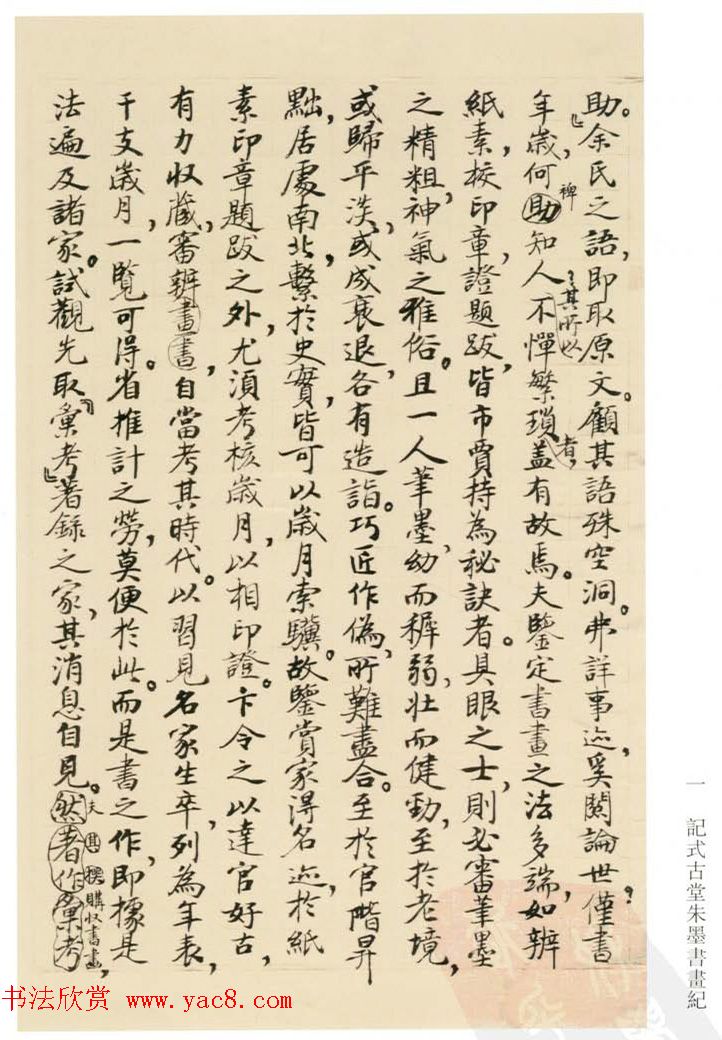 助。余氏之語，即取原文。顧其語殊空洞。弗詳事迹，奚關論世？僅書
年歲，何裨助知人？其所以不憚繁瑣者，蓋有故焉。夫鑒定書畫之法多端，如辨
紙素，校印章，證題跋，皆市賈持為秘訣者。具眼之士，則必審筆墨
之精粗，神氣之雅俗。且一人筆墨，幼而穉弱，壯而健勁，至於老境，
或歸平淡，或成衰退，各有造詣。巧匠作偽，所難盡合。至於官階昇
黜，居處南北，繫於史實，皆可以歲月索驥。故鑒賞家得名迹，於紙
素印章題跋之外，尤須考核歲月，以相印證。卞令之以達官好古，
有力收藏，審辨畫書，自當考其時代。以習見名家生卒，列為年表，
干支歲月，一覽可得。省推計之勞，莫便於此。而是書之作，即據是
法遍及諸家。試觀先取彙考著錄之家，其消息自見。夫其撰購收書畫然著作彙考，
一 記式古堂朱墨書畫紀
书法欣赏 www.yac8.com